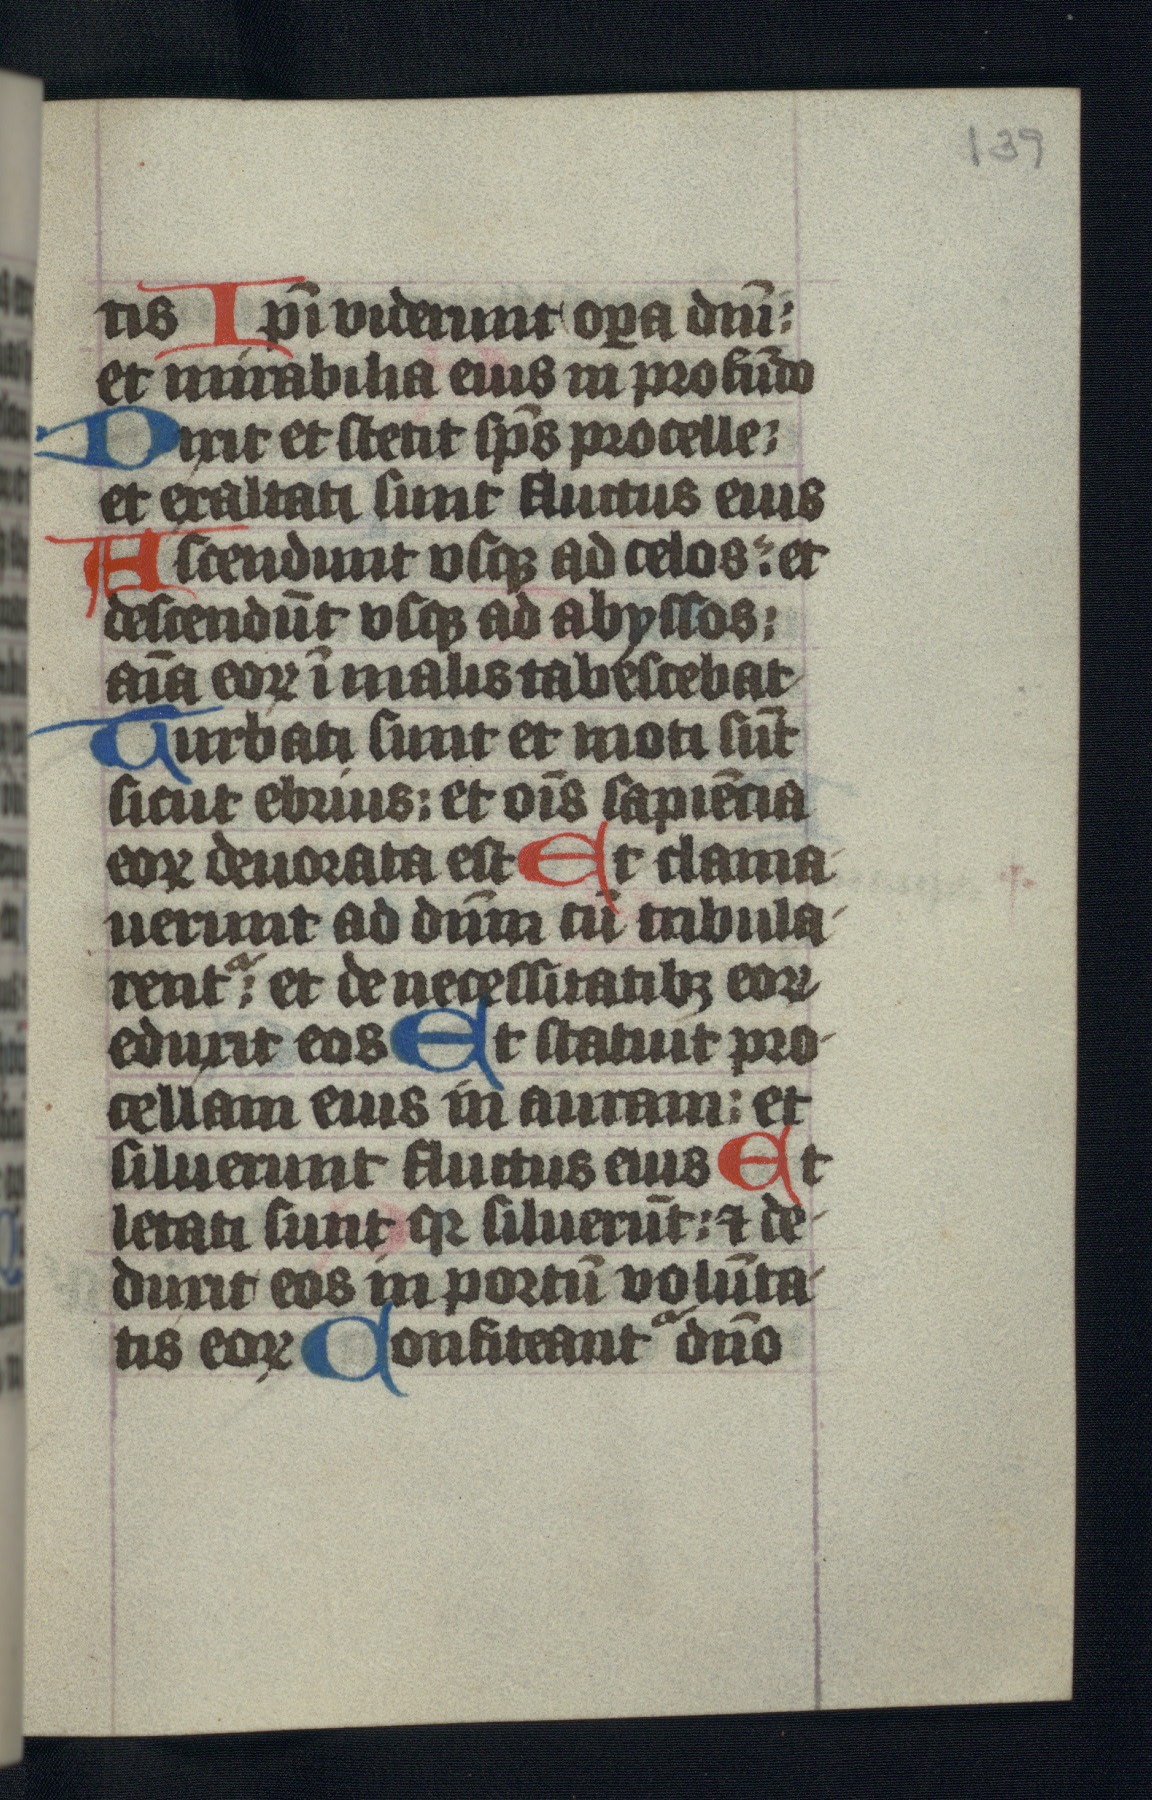 139
tis Ip̄i viderunt oꝑa dn̄i:
et mirabilia eius in profūdo
Dixit et stetit sp̄s procelle:
et exaltati sunt fluctus eius
Ascendunt vsqꝫ ad celos: et
descendūt vsqꝫ ad abyssos:
aīa eoꝝ ī malis tabescebat
Turbati sunt et moti sūt
sicut ebrius: et oīs sapiēcia
eoꝝ deuorata est Et clama-
uerunt ad dn̄m cū tribula-
rentᷣ: et de necessitatibꝫ eoꝝ
eduxit eos Et statuit pro-
cellam eius in auram: et
siluerunt fluctus eius Et
letati sunt qꝛ siluerūt: ⁊ de-
duxit eos in portū volūta-
tis eoꝝ Confiteantᷣ dn̄o